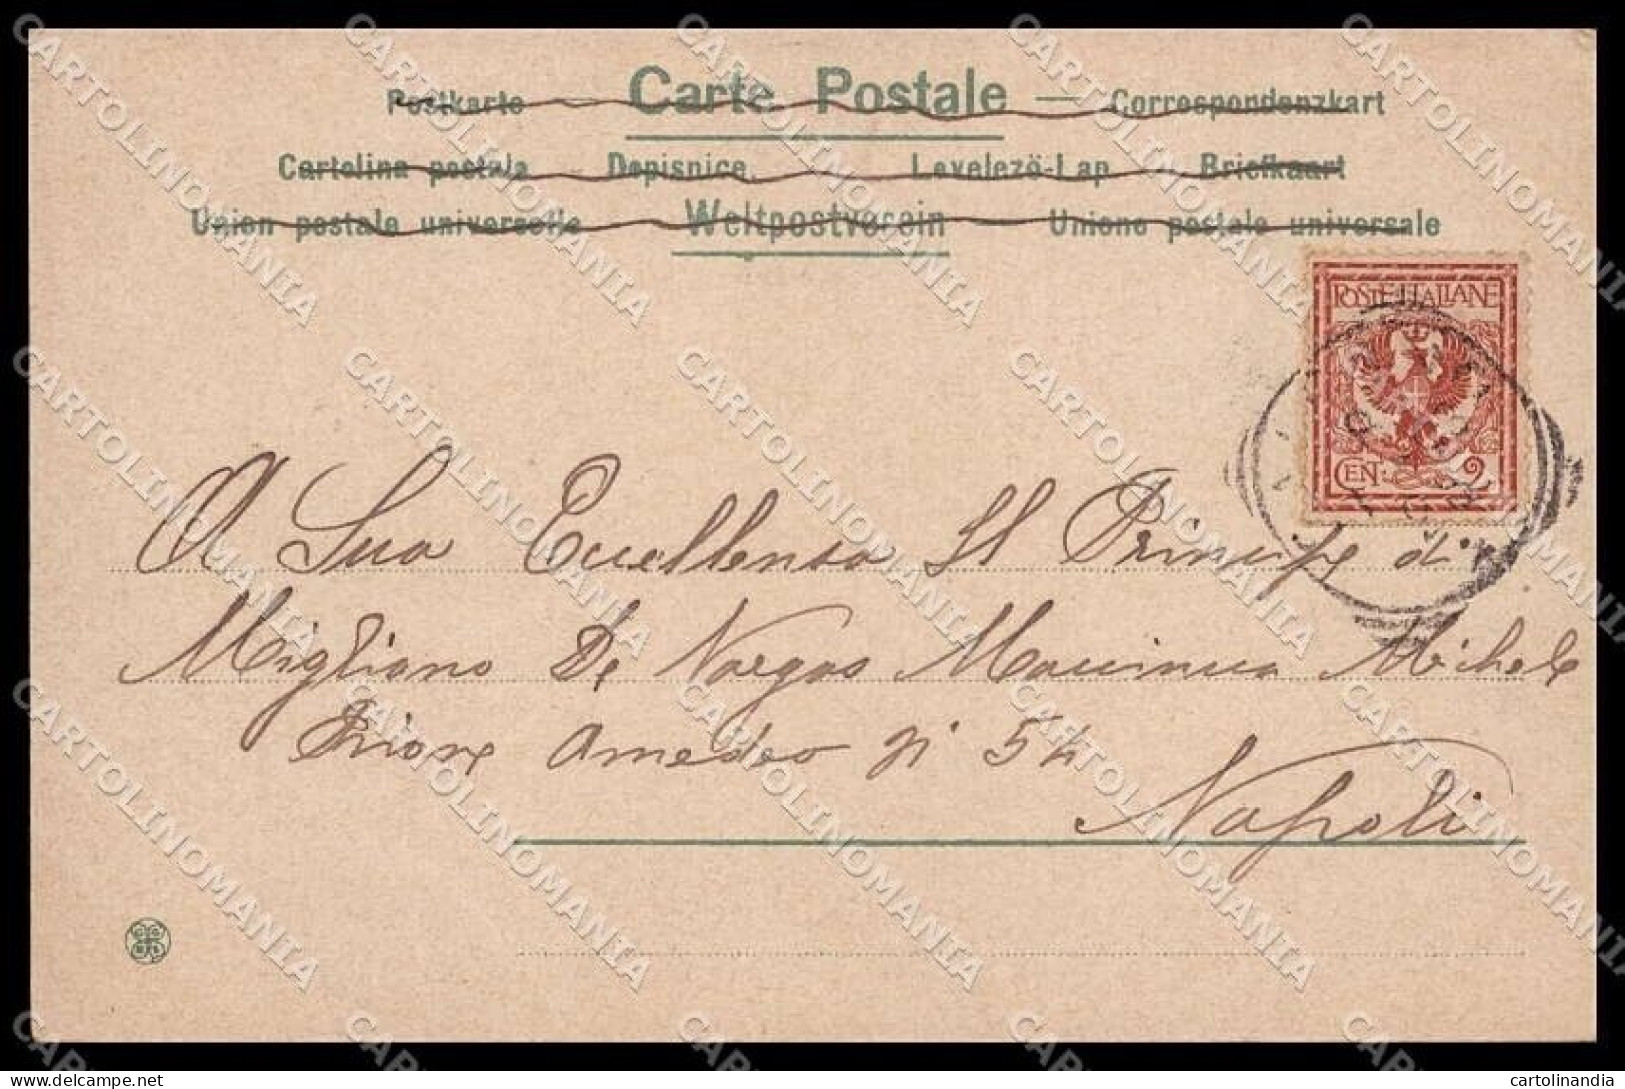 Postkarte — Carte Postale — Correspondenzkart
Cartolina postala Dopisnice. Levelező-Lap Briefkaart
Union postale universelle Weltpostverein Unione postale universale
POSTE ITALIANE
CEN: 2
A Sua Eccellenza Il Principe di
Migliano De Vargas Macciucca Michele
Rione Amedeo N° 54
Napoli
CARTOLINOMANIA
www.delcampe.net
cartolinandia